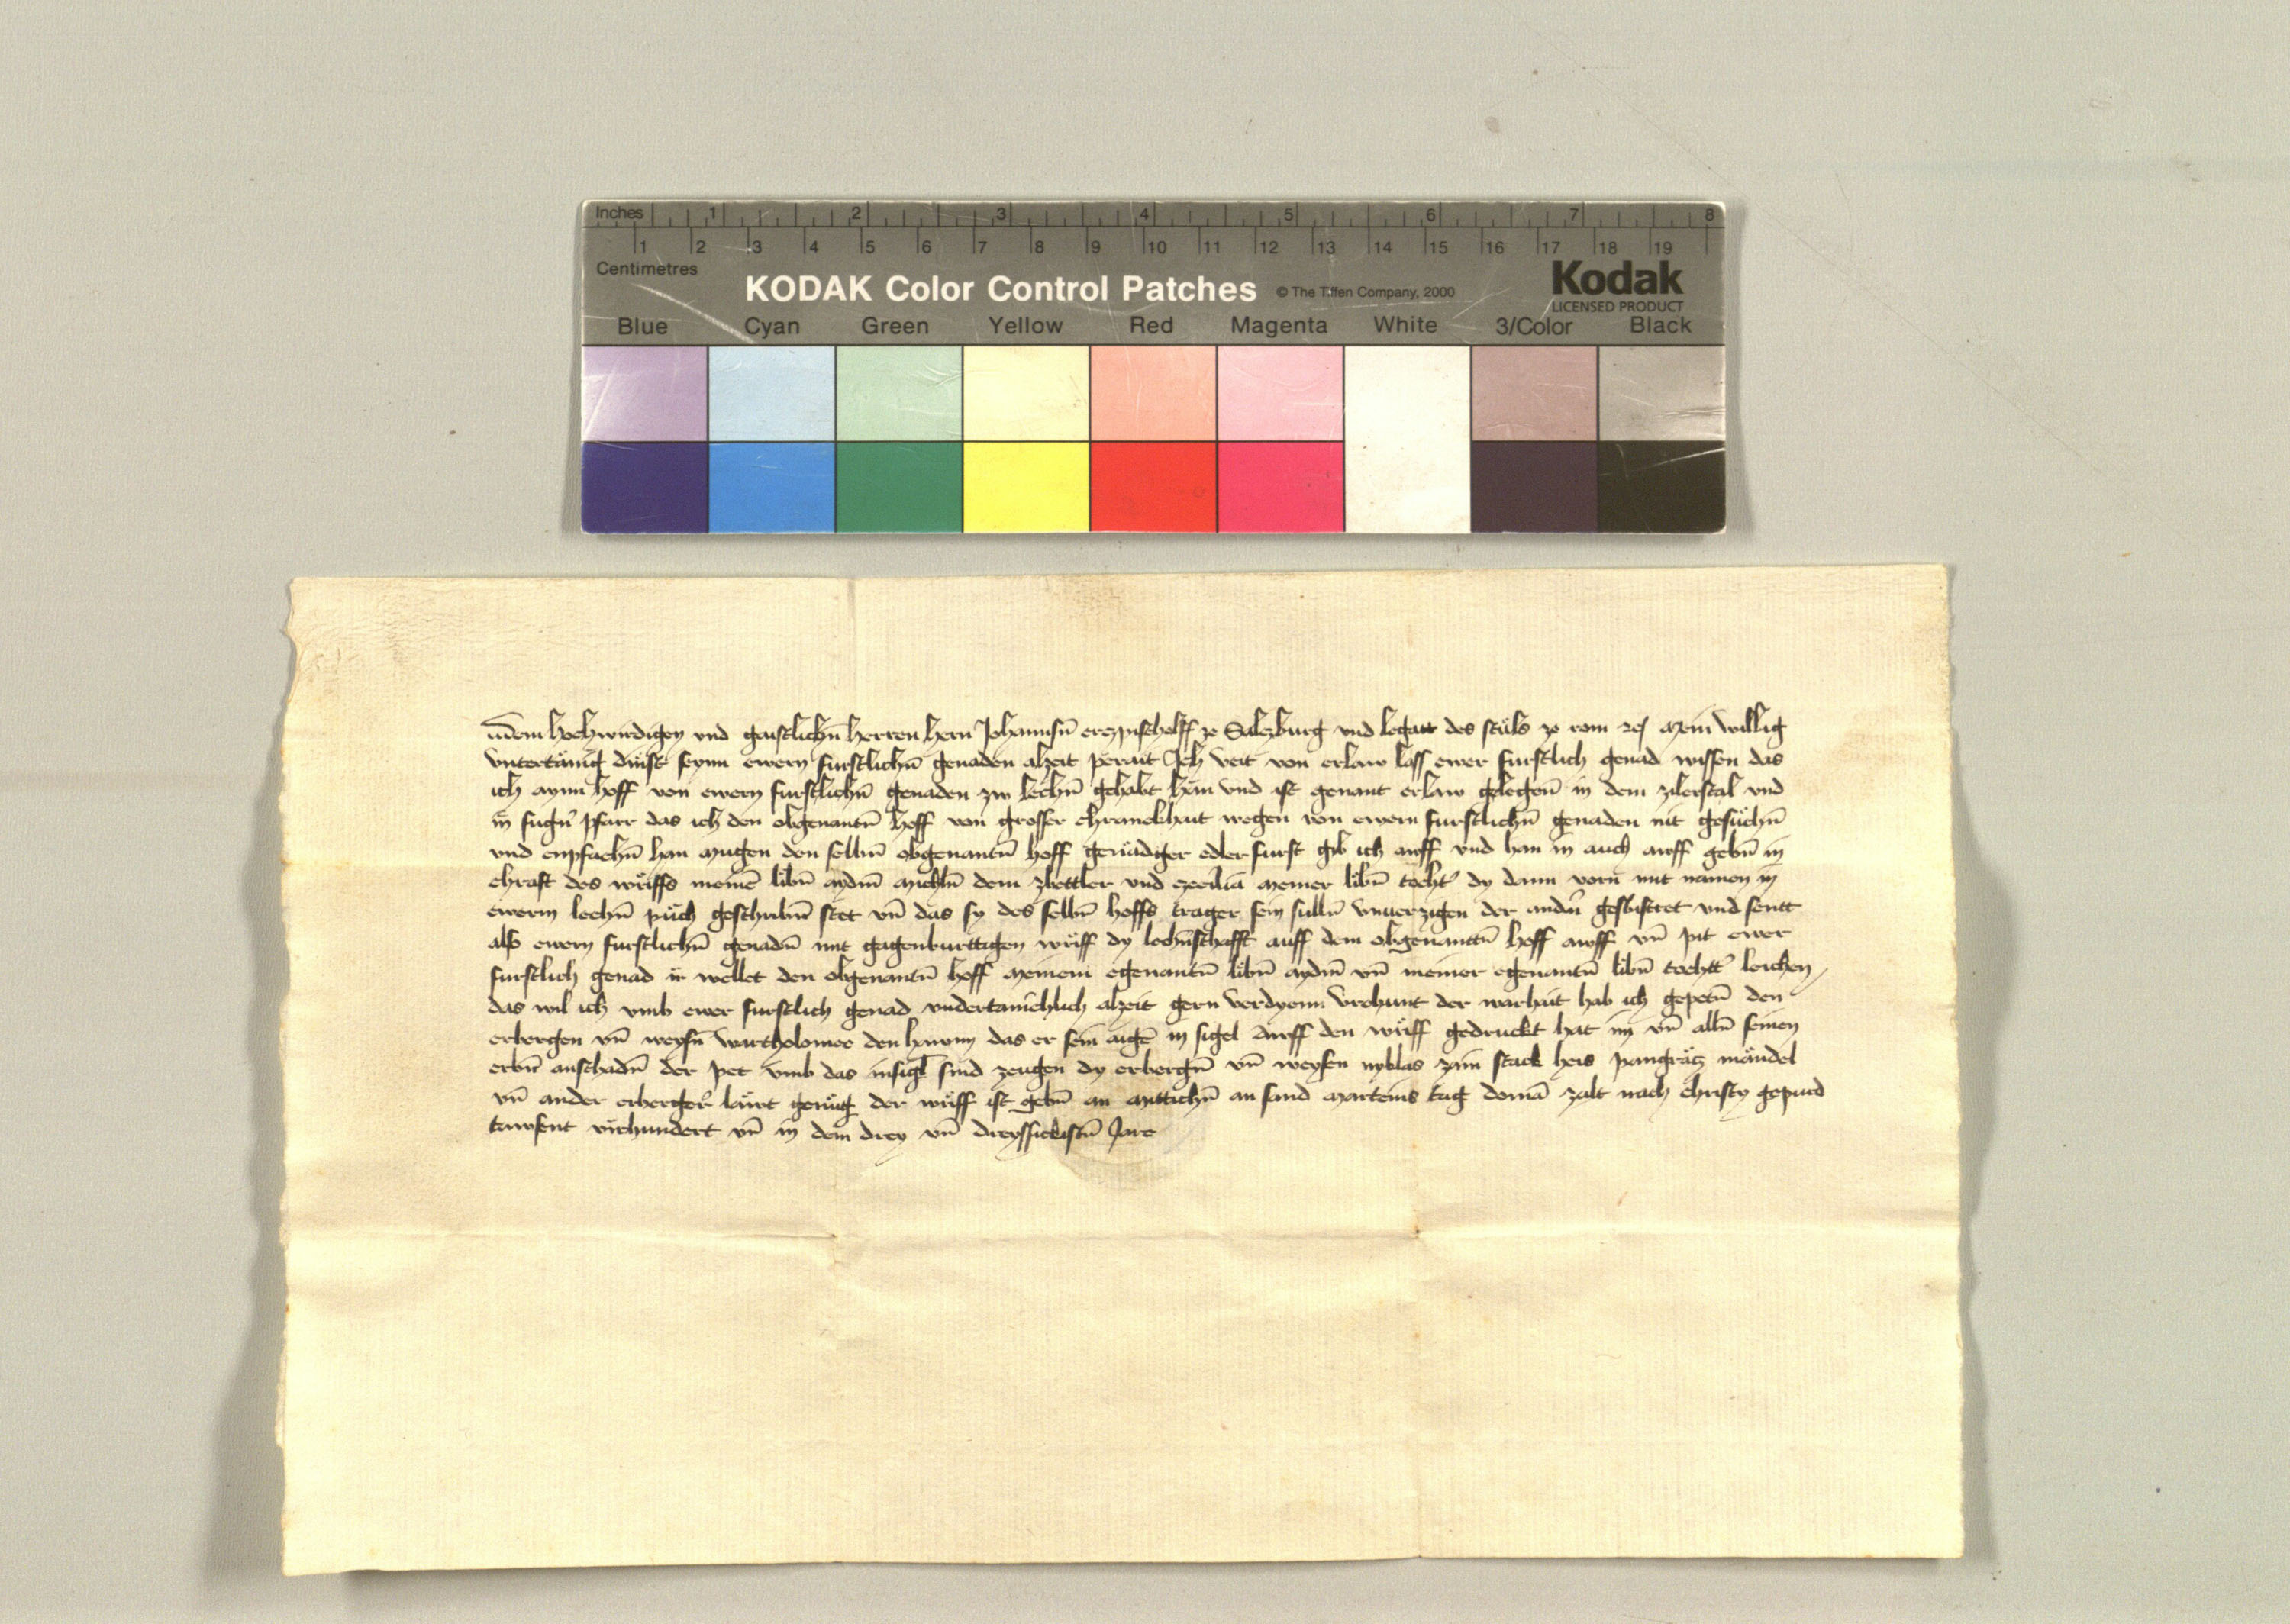 Inches 1 2 3 4 5 6 7 8
1 2 3 4 5 6 7 8 9 10 11 12 13 14 15 16 17 18 19
Centimetres
KODAK Color Control Patches © The Tiffen Company, 2000 Kodak
LICENSED PRODUCT
Blue Cyan Green Yellow Red Magenta White 3/Color Black
dem hochwirdigen vnd geistlichn̄ herren hern Johannsn̄ erczpischolff ze Salczburg vnd legatt des stuls ze rom mein willig
vntertänig dinst seynn ewern furstlichn̄ genaden alzeit perait Ich veit von erlaw lass ewer furstlich genad wissen das
ich aynn hoff von ewern furstlichn̄ genaden zw lechn̄ gehabt han vnd ist genant erlaw gelegen̄ in dem zilerstal vnd
in fugn̄ pfarr das ich den obgenantn̄ hoff von grosser chranckhait wegen von ewern furstlichn̄ genaden nit gesuchn̄
vnd enpfachn̄ han mugen den selbn̄ obgenantn̄ hoff genädiger edler furst gib ich awff vnd han in auch awff gebn̄ in
chraft des wriffs meinē libn̄ aydm̄ michln̄ dem zbettler vnd cecilia meiner libn̄ tocht' dy dann vorn mit namen in
ewerm lechn̄ puch geschribn̄ stet vn̄ das sy des selbn̄ hoffs trager sein sulln̄ vnuerzigen der andn̄ gesbistret vnd sentt
also ewern furstlichn̄ genadn̄ mit gagenburttigen wriff dy lechn̄schafft auff dem obgenanttn̄ hoff awff vn̄ pit ewer
furstlich genad ir wellet den obgenantn̄ hoff meinem egenantn̄ libn̄ aydm̄ vn̄ meiner egenantn̄ libn̄ tochtt' leichen
das wil ich vmb ewer furstlich genad vndertanichlich alzeit gern verdyenn vrchunt der warhait hab ich gepetn̄ den
erbergen vn̄ weysn̄ wartholomee den das er sein aigē in sigel awff den wriff gedruckt hat im vn̄ alln̄ seinen
erbn̄ anschadn̄ der pet vmb das insigl sind zeugen dy erbergn̄ vn̄ weysen nyklas zain stack heis pangrätz mändel
vn̄ ander erberger läwt genug der wriff ist gebn̄ an mittichn̄ an sand marteins tag do mā zalt nach christy gepurd
tawsent virhundert vn̄ in dem drey vn̄ dreyssickistn̄ Jare